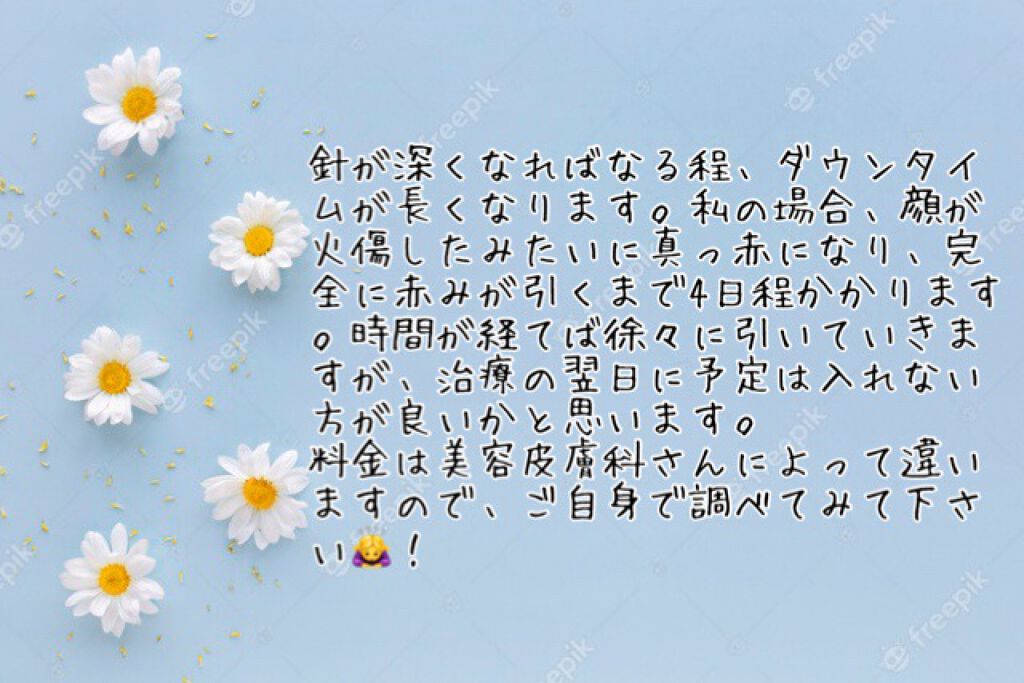 針が深くなればなる程、ダウンタイ
ムが長くなります。私の場合、顔が
火傷したみたいに真っ赤になり、完
全に赤みが引くまで4日程かかります
。時間が経てば徐々に引いていきま
すが、治療の翌日に予定は入れない
方が良いかと思います。
料金は美容皮膚科さんによって違い
ますので、ご自身で調べてみて下さ
い🙇‍♀️！
freepik
freepik
freepik
freepik
freepik
freepik
freepik
freepik
freepik